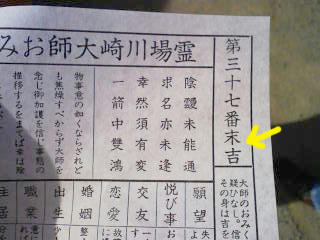 霊場川崎大師おみ
第三十七番末吉
大師のおみく
疑ひなし。信
その身は吉を
陰靉未能通
求名亦未逢
幸然須有変
一箭中双鴻
物事意の如くならざれど
も焦燥すべからず大師を
念じ御加護を信じ事態の
推移するをまてば幸は除
願望
悦び事
交友
恋愛
婚姻
出生
職業
住居